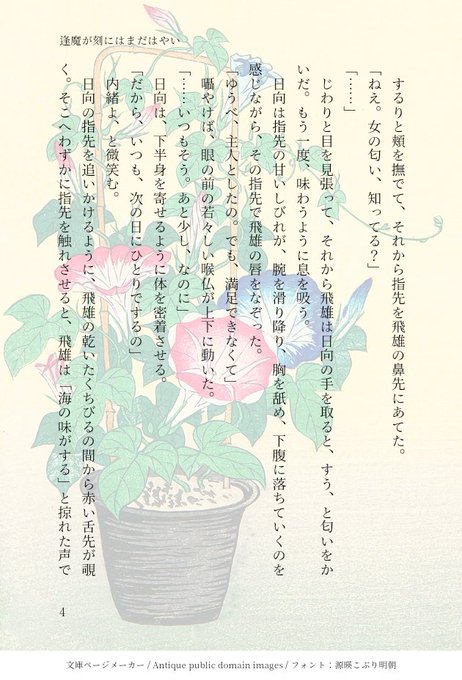 逢魔が刻にはまだはやい
　するりと頬を撫でて、それから指先を飛雄の鼻先にあてた。
「ねえ。女の匂い、知ってる？」
「……」
　じわりと目を見張って、それから飛雄は日向の手を取ると、すう、と匂いをか
いだ。もう一度、味わうように息を吸う。
　日向は指先の甘いしびれが、腕を滑り降り、胸を舐め、下腹に落ちていくのを
感じながら、その指先で飛雄の唇をなぞった。
「ゆうべ、主人としたの。でも、満足できなくて」
　囁やけば、眼の前の若々しい喉仏が上下に動いた。
「……いつもそう。あと少し、なのに」
　日向は、下半身を寄せるように体を密着させる。
「だから、いつも、次の日にひとりでするの」
　内緒よ、と微笑む。
　日向の指先を追いかけるように、飛雄の乾いたくちびるの間から赤い舌先が覗
く。そこへわずかに指先を触れさせると、飛雄は「海の味がする」と掠れた声で
4
文庫ページメーカー / Antique public domain images / フォント：源暎こぶり明朝